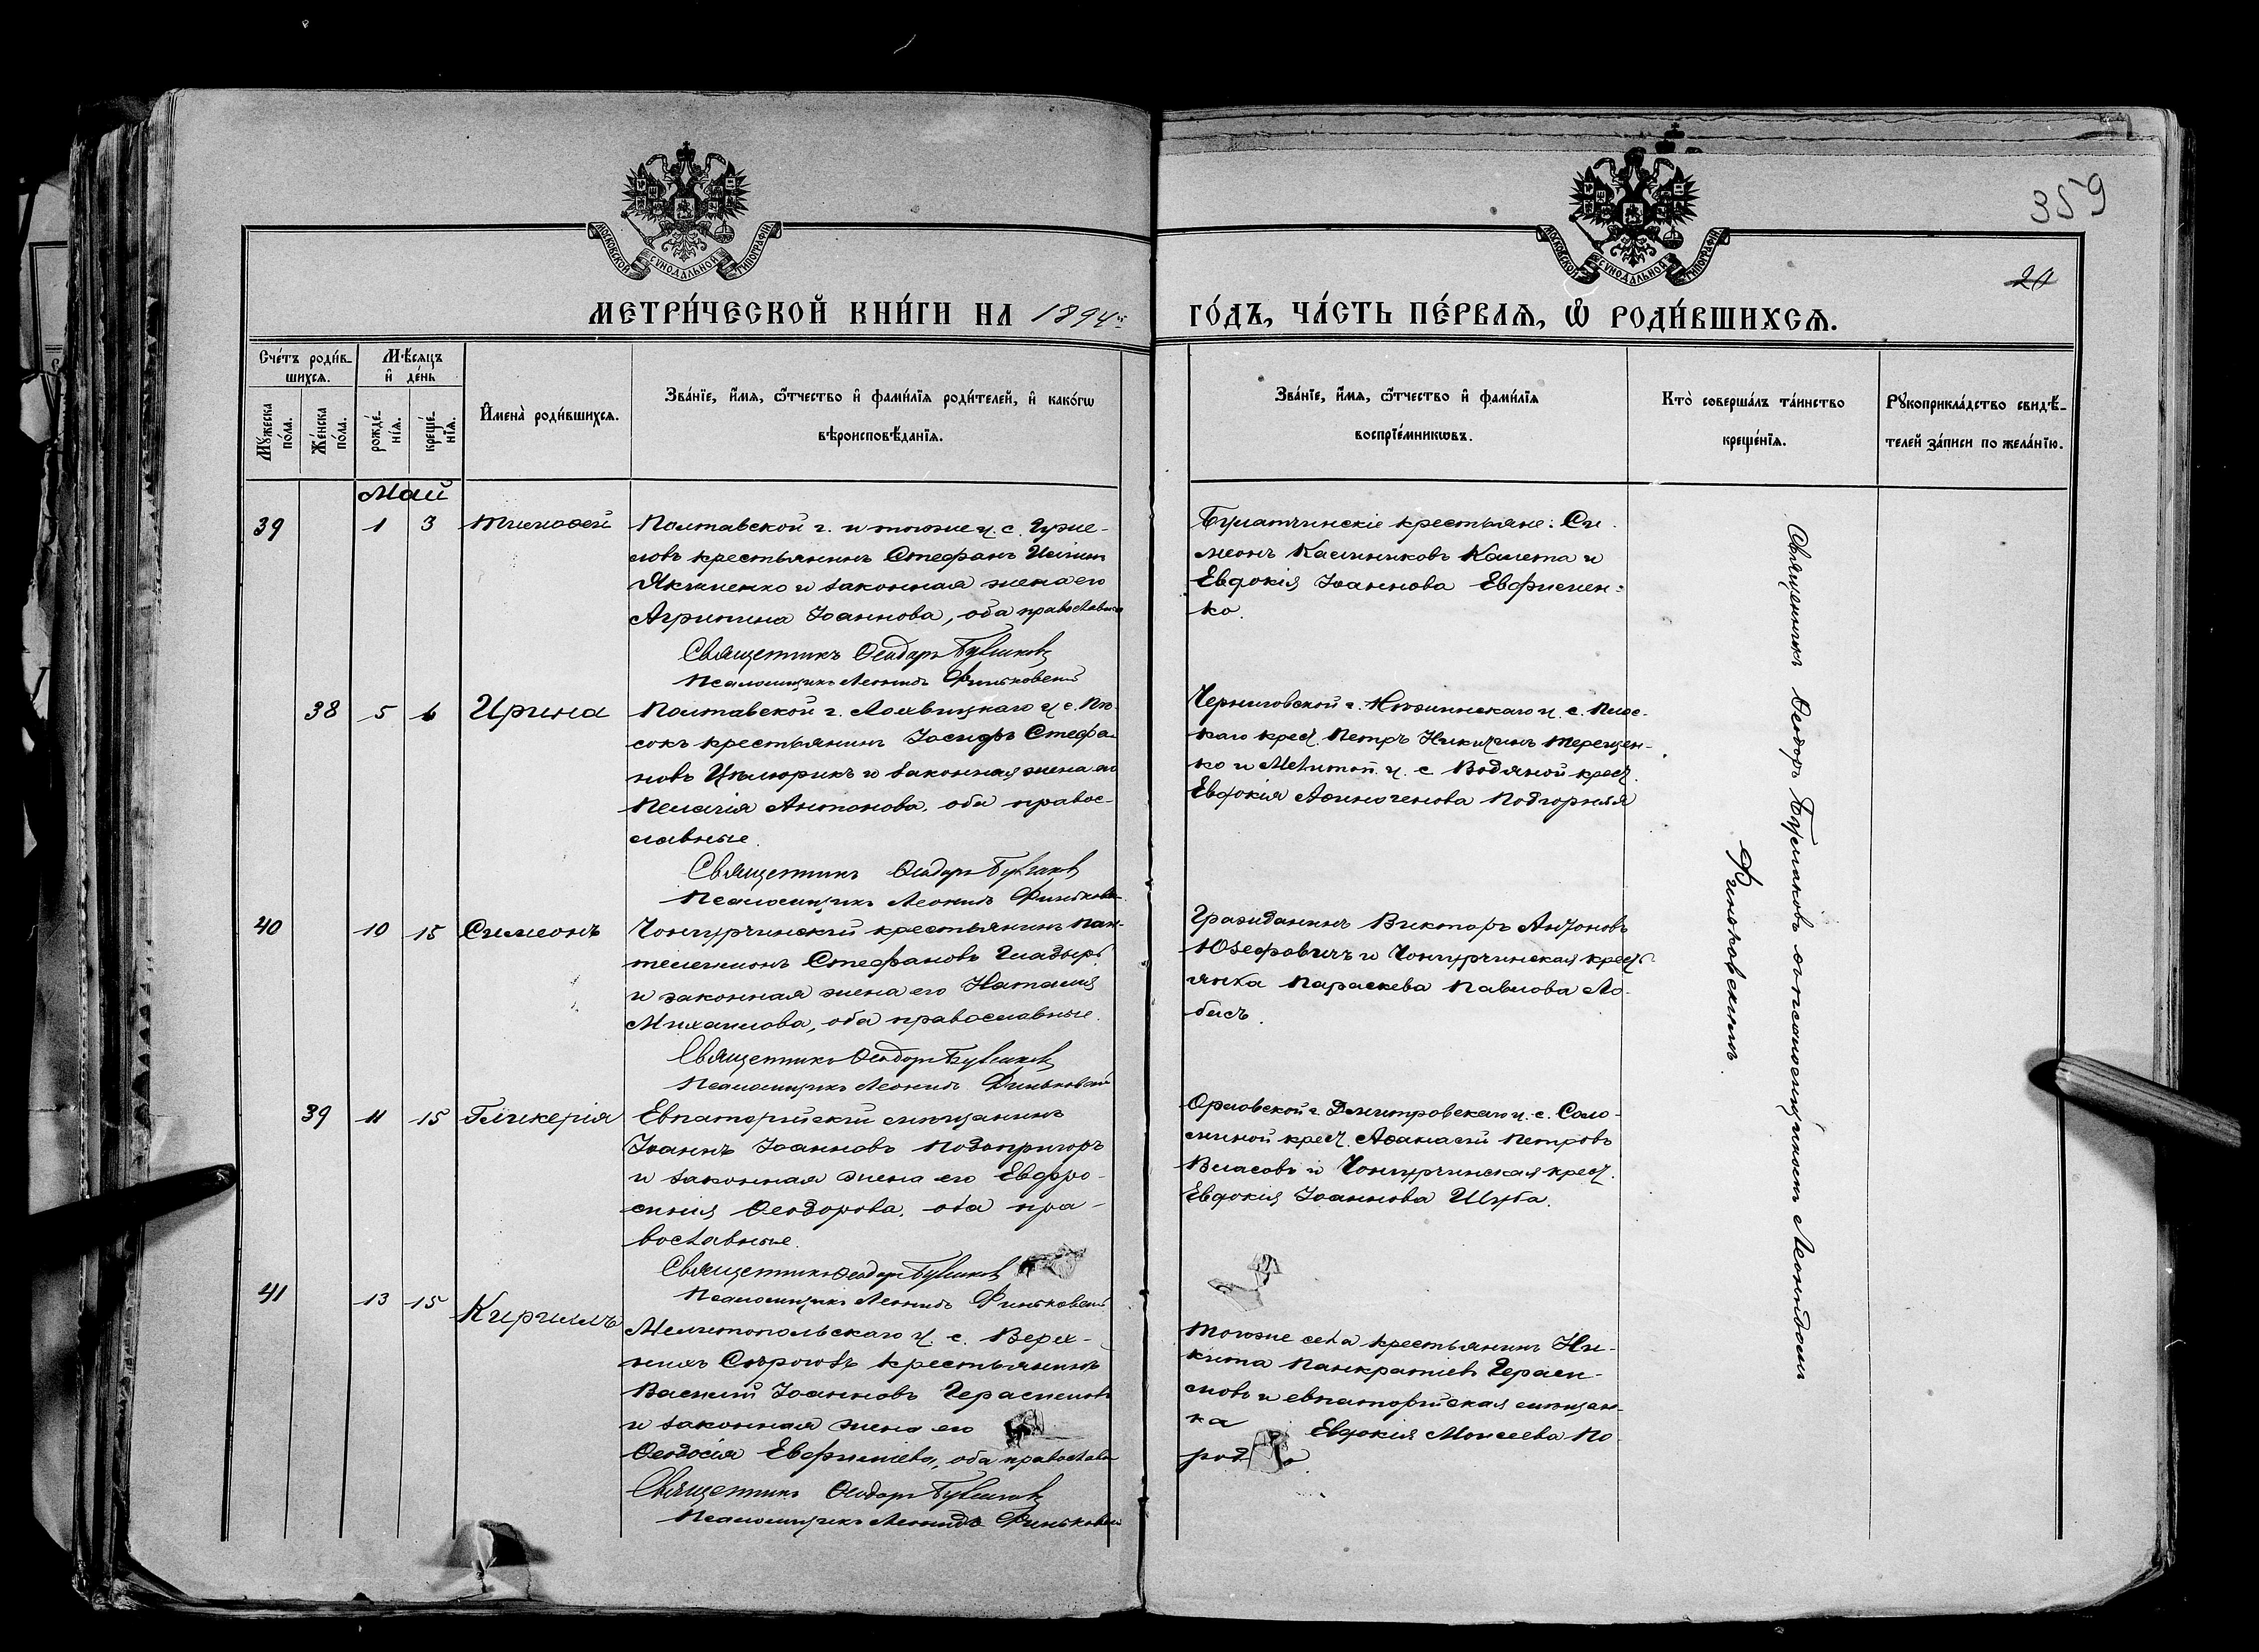 359
20
МОСКОВСКОЙ СѴНОДАЛЬНОЙ ТИПОГРАФІИ
МОСКОВСКОЙ СѴНОДАЛЬНОЙ ТИПОГРАФІИ
МЕТРИ́ЧЕСКОЙ КНИ́ГИ НА 1894й
ГО́ДЪ, ЧА́СТЬ ПЕ́РВАѦ, Ѡ РОДИ́ВШИХСѦ.
Сче́тъ роди́в-
шихсѧ.
Мѹжеска по́ла.
Же́нска по́ла.
Мѣ́сѧцъ
и҆ де́нь
рожде́-нїѧ.
креще́-нїѧ.
И҆мена̀ роди́вшихсѧ.
Зва́нїе, и҆́мѧ, ѻ҆́тчество и҆ фами́лїѧ роди́телей, и҆ како́гѡ
вѣроисповѣ́данїѧ.
Зва́нїе, и҆́мѧ, ѻ҆́тчество и҆ фами́лїѧ
воспрїе́мникѡвъ.
Кто̀ соверша́лъ та́инство
креще́нїѧ.
Рꙋкоприкла́дство свидѣ́-
телей за́писи по жела́нїю.
Май
39 1 3 Тимоѳей
Полтавской г. и тогоже у. с.
крестьянинъ Стефанъ
Якименко и законная жена его
Агрипина Іоаннова, оба православные
Священникъ Ѳеодоръ Булгаковъ
Псаломщикъ Леонидъ Финьковскій
Булатчинскіе крестьяне: Си-
меонъ Каминиковъ Калета и
Евдокія Іоаннова Евфимен-
ко.
38 5 6 Ирина
Полтавской г. Лохвицкаго у. с. Пѣ-
сокъ крестьянинъ Іосифъ Стефа-
новъ Цѣлюрикъ и законная жена его
Пелагія Антонова, оба правос-
лавные.
Священникъ Ѳеодоръ Булгаковъ
Псаломщикъ Леонидъ Финьковскій
Черниговской г. Нѣжинскаго у. с.
крест. Петръ Никитинъ Терещен-
ко и Мелитоп. у. с. Водяной крест.
Евдокія Аѳиногенова Подгорняя
40 10 15 Симеонъ
Чонгурчинскій крестьянинъ Пан-
телеимонъ Стефановъ Гладырь
и законная жена его Наталія
Михаилова, оба православные.
Священникъ Ѳеодоръ Булгаковъ
Псаломщикъ Леонидъ Финьковскій
Гражданинъ Викторъ Антоновъ
Юзефовичъ и Чонгурчинская крест-
янка Параскева Павлова Ло-
басъ.
39 11 15 Гликерія
Евпаторійскій мѣщанинъ
Іоаннъ Іоанновъ Подопригоръ
и законная жена его Евфро-
синія Ѳеодорова, оба пра-
вославные.
Священникъ Ѳеодоръ Булгаковъ
Псаломщикъ Леонидъ Финьковскій
Орловской г. Дмитровскаго у. с. Соло-
миной крест. Аѳанасій Петровъ
Власовъ и Чонгурчинская крест.
Евдокія Іоаннова Шуба.
41 13 15 Кириллъ
Мелитопольскаго у. с. Верх-
нихъ Сѣрогозъ крестьянинъ
Василій Іоанновъ Герасимовъ
и законная жена его
Ѳеодосія Евфиміева, оба православ.
Священникъ Ѳеодоръ Булгаковъ
Псаломщикъ Леонидъ Финьковскій
Тогоже села крестьянинъ Ни-
кита Панкратіевъ Гераси-
мовъ и евпаторійская мѣщан-
ка Евдокія Моисеева По-
Священникъ Ѳеодоръ Булгаковъ съ псаломщикомъ Леонидомъ
Финьковскимъ.